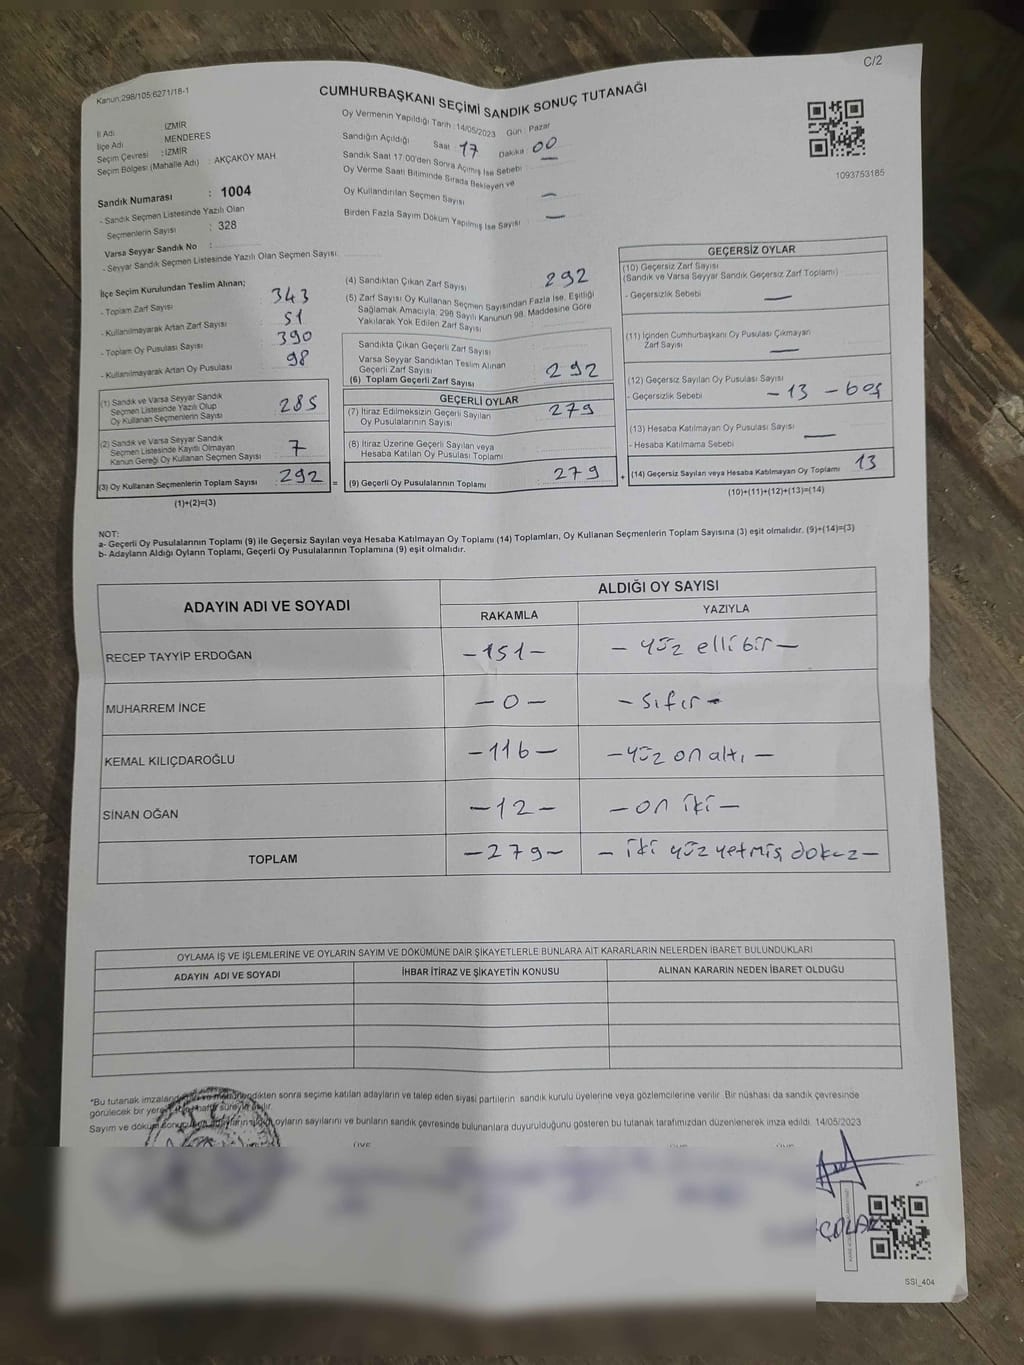 C/2
Kanun:298/105:6271/18-1
CUMHURBAŞKANI SEÇİMİ SANDIK SONUÇ TUTANAĞI
İl Adı : İZMİR
İlçe Adı : MENDERES
Seçim Çevresi : İZMİR
Seçim Bölgesi (Mahalle Adı) : AKÇAKÖY MAH
Oy Vermenin Yapıldığı Tarih : 14/05/2023 Gün : Pazar
Sandığın Açıldığı Saat : 17 Dakika : 00
Sandık Saat 17.00'den Sonra Açılmış İse Sebebi : —
Oy Verme Saati Bitiminde Sırada Bekleyen ve
Oy Kullandırılan Seçmen Sayısı —
Birden Fazla Sayım Döküm Yapılmış İse Sayısı : —
1093753185
Sandık Numarası : 1004
- Sandık Seçmen Listesinde Yazılı Olan
Seçmenlerin Sayısı : 328
Varsa Seyyar Sandık No :
- Seyyar Sandık Seçmen Listesinde Yazılı Olan Seçmen Sayısı:
İlçe Seçim Kurulundan Teslim Alınan;
- Toplam Zarf Sayısı : 343
- Kullanılmayarak Artan Zarf Sayısı : 51
- Toplam Oy Pusulası Sayısı : 390
- Kullanılmayarak Artan Oy Pusulası : 98
(1) Sandık ve Varsa Seyyar Sandık
Seçmen Listesinde Yazılı Olup
Oy Kullanan Seçmenlerin Sayısı : 285
(2) Sandık ve Varsa Seyyar Sandık
Seçmen Listesinde Kayıtlı Olmayan
Kanun Gereği Oy Kullanan Seçmen Sayısı : 7
(3) Oy Kullanan Seçmenlerin Toplam Sayısı : 292
(1)+(2)=(3)
(4) Sandıktan Çıkan Zarf Sayısı : 292
(5) Zarf Sayısı Oy Kullanan Seçmen Sayısından Fazla İse, Eşitliği
Sağlamak Amacıyla; 298 Sayılı Kanunun 98. Maddesine Göre
Yakılarak Yok Edilen Zarf Sayısı
Sandıkta Çıkan Geçerli Zarf Sayısı
Varsa Seyyar Sandıktan Teslim Alınan
Geçerli Zarf Sayısı
(6) Toplam Geçerli Zarf Sayısı : 292
GEÇERLİ OYLAR
(7) İtiraz Edilmeksizin Geçerli Sayılan
Oy Pusulalarının Sayısı : 279
(8) İtiraz Üzerine Geçerli Sayılan veya
Hesaba Katılan Oy Pusulası Toplamı
= (9) Geçerli Oy Pusulalarının Toplamı : 279 +
GEÇERSİZ OYLAR
(10) Geçersiz Zarf Sayısı
(Sandık ve Varsa Seyyar Sandık Geçersiz Zarf Toplamı)
- Geçersizlik Sebebi —
(11) İçinden Cumhurbaşkanı Oy Pusulası Çıkmayan
Zarf Sayısı —
(12) Geçersiz Sayılan Oy Pusulası Sayısı
- Geçersizlik Sebebi - 13 - boş
(13) Hesaba Katılmayan Oy Pusulası Sayısı
- Hesaba Katılmama Sebebi —
(14) Geçersiz Sayılan veya Hesaba Katılmayan Oy Toplamı 13
(10)+(11)+(12)+(13)=(14)
NOT:
a- Geçerli Oy Pusulalarının Toplamı (9) ile Geçersiz Sayılan veya Hesaba Katılmayan Oy Toplamı (14) Toplamları, Oy Kullanan Seçmenlerin Toplam Sayısına (3) eşit olmalıdır. (9)+(14)=(3)
b- Adayların Aldığı Oyların Toplamı, Geçerli Oy Pusulalarının Toplamına (9) eşit olmalıdır.
ADAYIN ADI VE SOYADI
ALDIĞI OY SAYISI
RAKAMLA YAZIYLA
RECEP TAYYİP ERDOĞAN -151- - yüz elli bir -
MUHARREM İNCE - 0 - - sıfır -
KEMAL KILIÇDAROĞLU -116- - yüz on altı -
SİNAN OĞAN -12- - on iki -
TOPLAM -279- - iki yüz yetmiş dokuz -
OYLAMA İŞ VE İŞLEMLERİNE VE OYLARIN SAYIM VE DÖKÜMÜNE DAİR ŞİKAYETLERLE BUNLARA AİT KARARLARIN NELERDEN İBARET BULUNDUKLARI
ADAYIN ADI VE SOYADI İHBAR İTİRAZ VE ŞİKAYETİN KONUSU ALINAN KARARIN NEDEN İBARET OLDUĞU
*Bu tutanak sonra seçime katılan adayların ve talep eden siyasi partilerin sandık kurulu üyelerine veya gözlemcilerine verilir. Bir nüshası da sandık çevresinde
görülecek bir yere süreyle asılır.
Sayım ve döküm oyların sayılarını ve bunların sandık çevresinde bulunanlara duyurulduğunu gösteren bu tutanak tarafımızdan düzenlenerek imza edildi. 14/05/2023
ÇOLAK
SSI_404